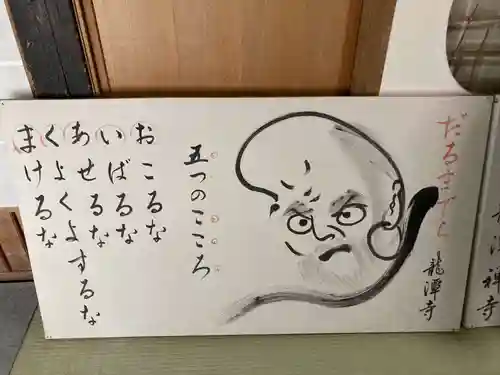 潭禅寺
だるまでら
龍潭寺
五つのこころ
おこるな
いばるな
あせるな
くよくよするな
まけるな